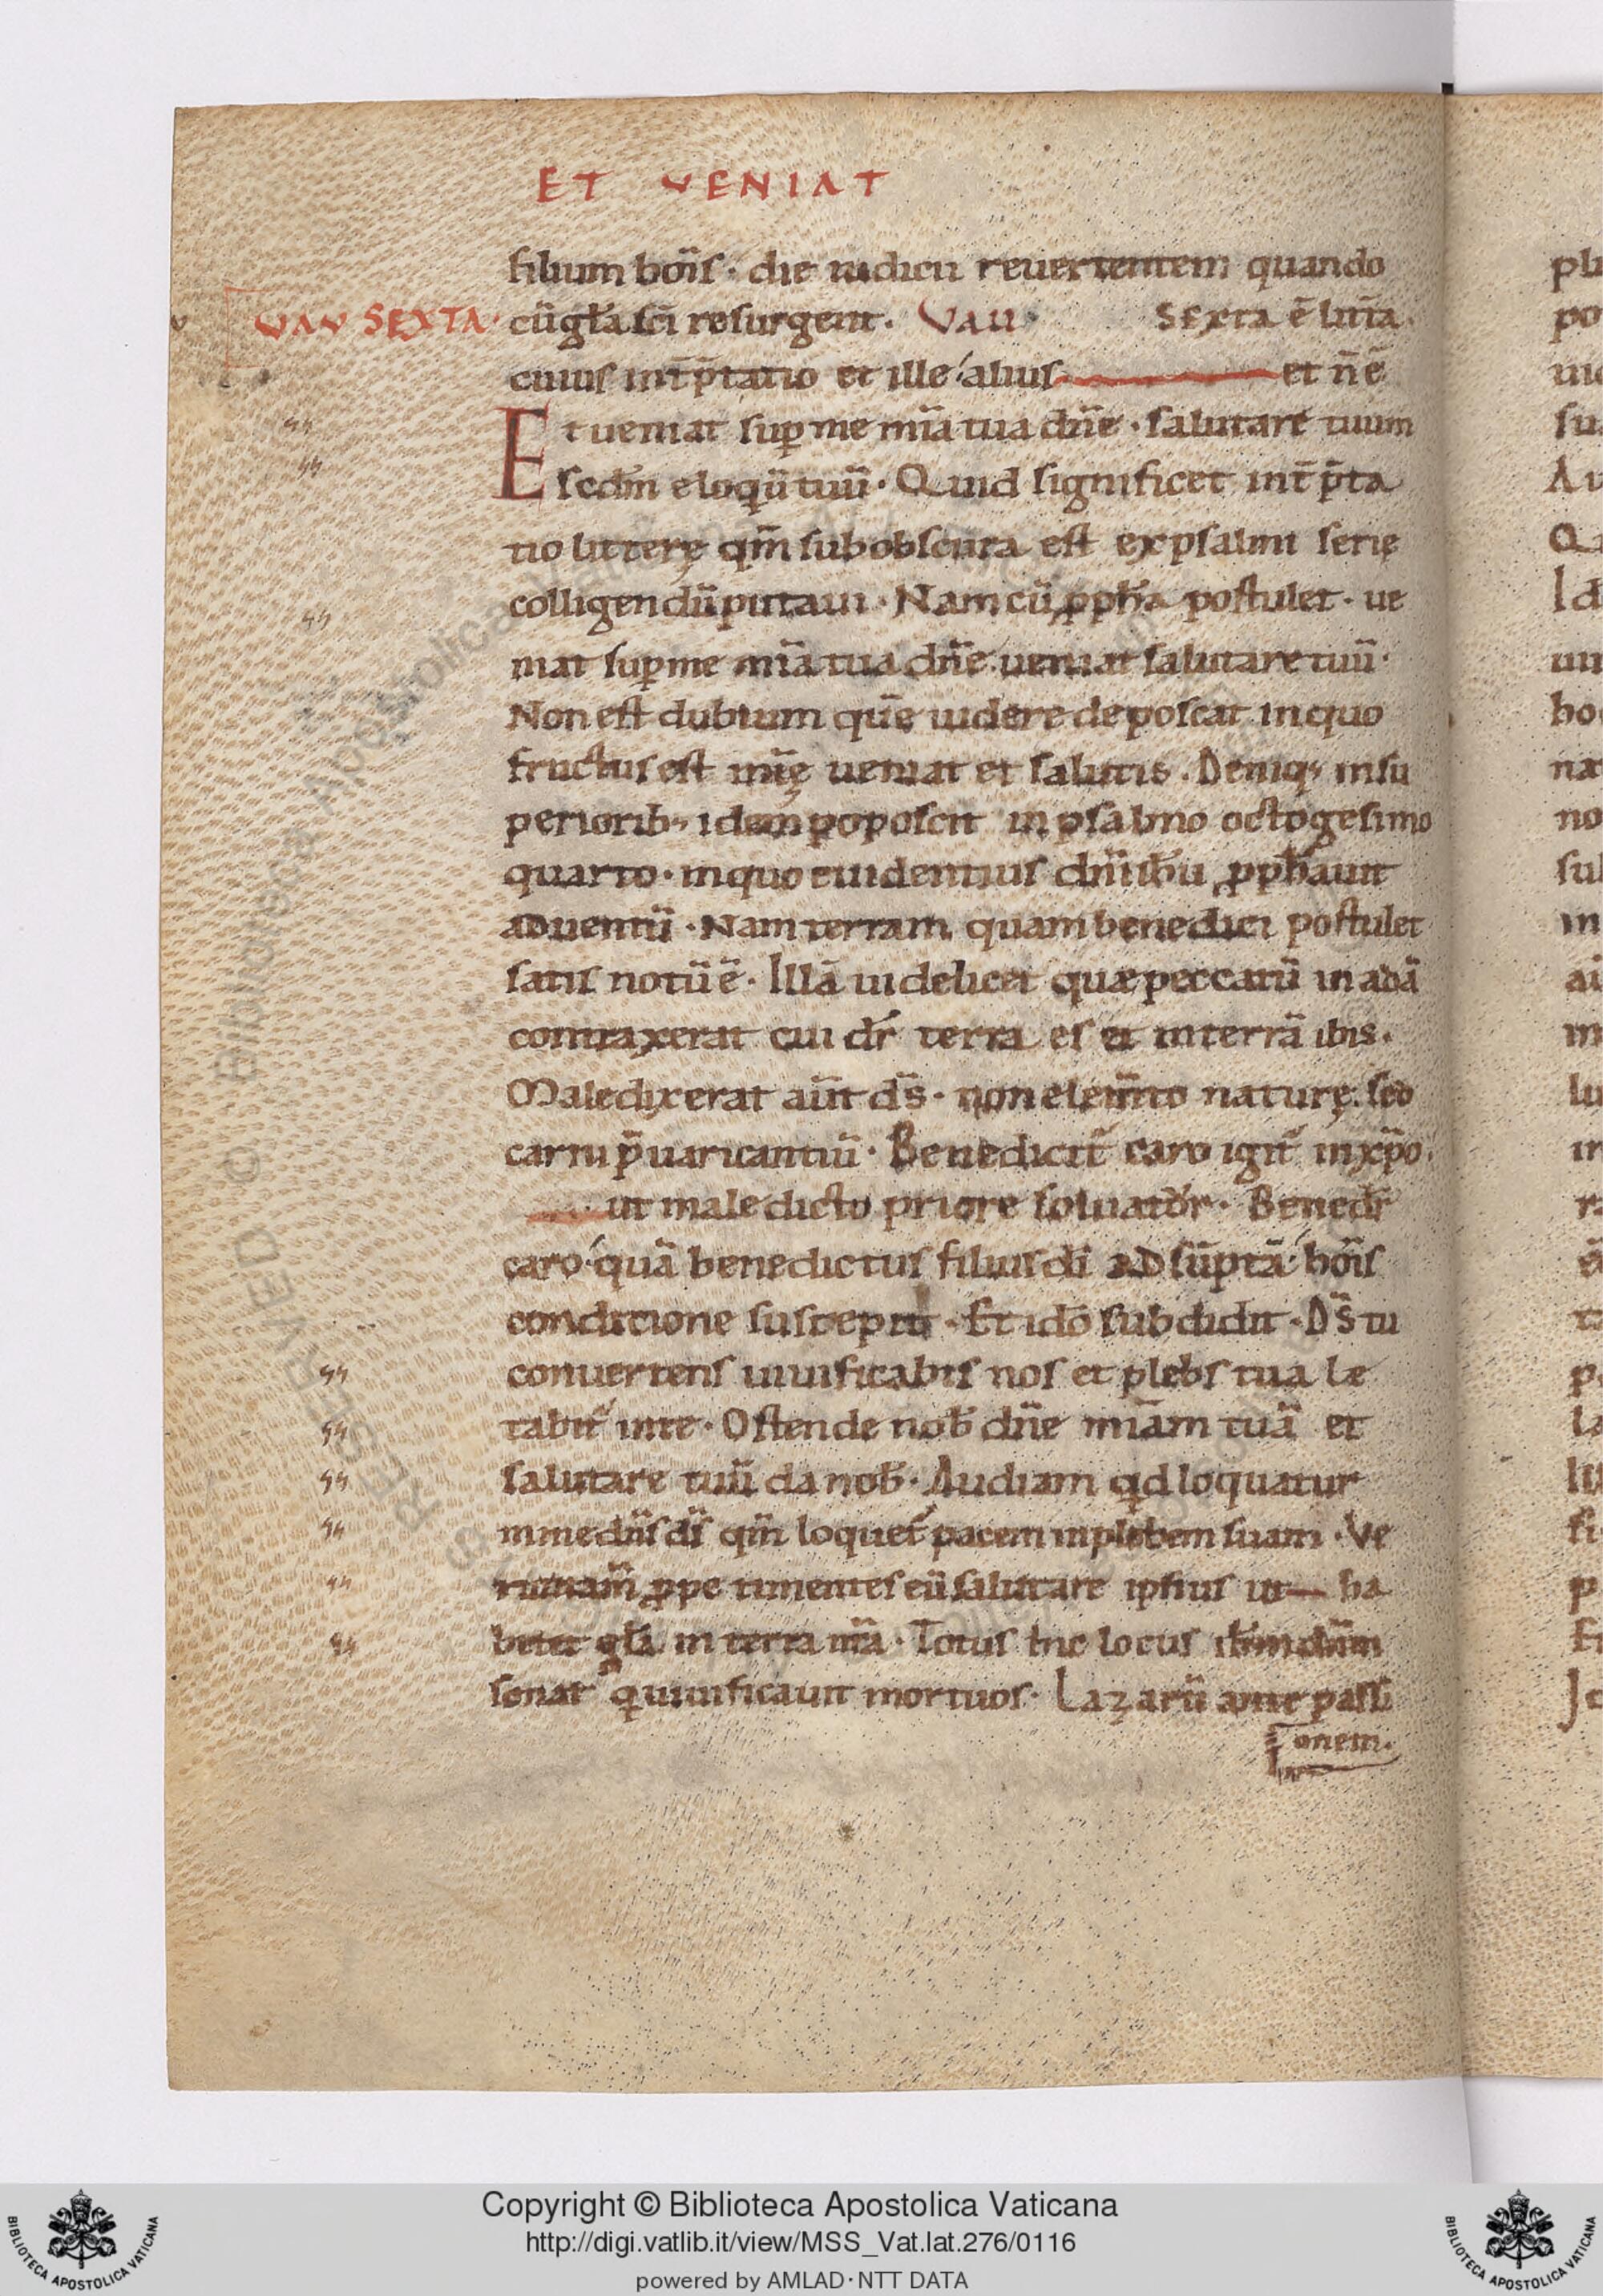 ET VENIAT
filium hoīs · die iudicii reuertentem quando
VAV SEXTA · cū gl̄a sc̄i resurgent. Vau · Sexta ē litt̄a.
cuius int̄p̄tatio et ille · alius et n̄ ē
Et ueniat sup̱ me mīa tua dn̄e · salutare tuum
scdm̄ eloqiū tuū · Quid significet int̄p̄ta
tio litterę qm̄ subobscura est ex psalmi serię
colligendū putaui · Nam cū ꝓph̄a postulet · ue
niat sup̱ me mīa tua dn̄e · ueniat salutare tuū ·
Non est dubium quē uidere deposcat in quo
fructus est mīę ueniat et salutis . Deniq; in su
periorib; idem poposcit in psalmo octogesimo
quarto · in quo euidentius dn̄i ih̄u ꝓph̄auit
aduentū · Nam terram quam benedici postulet
satis notū ē · Illā uidelicet quæ peccatū in adā
contraxerat cui dr̄ terra es et in terrā ibis .
Maledixerat aūt d̄s · non elem̄to naturę . sed
carni p̄uaricantiū · Benedicit̄ caro igit̄ in xp̄o .
ut maledicto priore soluator · Benedr̄
caro · quā benedictus filius dī adsūptā · hoīs
conditione suscepit · Et idō subdidit · D̄s tu
conuertens uiuificabis nos et plebs tua læ
tabit̄ in te · Ostende nob̄ dn̄e miām tuā et
salutare tuū da nob̄ · Audiam qd loquatur
in me dn̄s d̄s qm̄ loquet̄ pacem in plebem suam · Ve
runtam̄ ꝓpe timentes eū salutare ipsius ut ha
bitet gl̄a in terra nr̄a · Totus hic locus
sonat q̇ uiuificauit mortuos · Lazarū ante passi
onem .
Copyright © Biblioteca Apostolica Vaticana
http://digi.vatlib.it/view/MSS_Vat.lat.276/0116
powered by AMLAD·NTT DATA
BIBLIOTECA APOSTOLICA VATICANA
BIBLIOTECA APOSTOLICA VATICANA